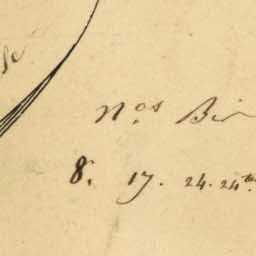 N.os Bi
8. 17. 24. 24.ter